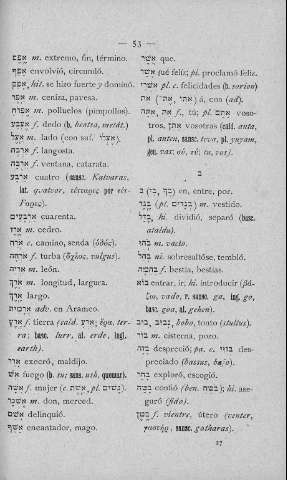 — 53 —
אפס m. extremo, fin, término.
אפף envolvió, circumió.
אפק hit. se hizo fuerte y dominó.
אפר m. ceniza, pavesa.
m. polluelos (pimpollos).
אצבע f. dedo (b.
אצל m. lado (con suf.
ארבה f. langosta.
ארבה f. ventana, catarata.
ארבע cuatro (sansc. Katuras,
lat. quatuor, τέτταρες por τέσ-
ארבעים cuarenta.
ארז m. cedro.
ארח c. camino, senda (ὁδός).
ארחה f. turba (ὄχλος, vulgus).
אריה m. león.
ארך m. longitud, largura.
ארך largo.
ארמית adv. en Arameo.
ארץ f. tierra (cald. ארע; ἔρα, ter-
ra; basc. lurr, al. erde, ingl.
earth).
ארר execró, maldijo.
אש fuego (b. su; sans. ush, quemar).
אשה f. mujer (c אשת, pl. נשים).
m. don, merced.
אשם delinquió.
אשף encantador, mago.
אשר que.
אשר fué feliz; pi. proclamó feliz.
אשרי pl. c. felicidades (b. sorion)
את (את, אתי) á, con (ad).
את, אתה f., tú; pl. אתם voso-
tros, אתן vosotras (cald. anta,
pl. anten, sansc. tva, pl. yuyam,
ב
ב (בְ, בַ) en, entre, por.
בגד (pl. בגדים) m. vestido.
בדל hi. dividió, separó (basc.
ataldu).
בהו m. vacío.
בהל ni. sobresaltóse, tembló.
בהמה f. bestia, bestias.
בוא entrar, ir; hi. introducir (βά-
ζω, vado, v. sansc. ga, ing. go,
basc. goa, al. gehen).
ביב, נביב, bobo, tonto (stultus).
בור m. cisterna, pozo.
בזה despreció; pa. c. בזוי des-
preciado
בחר exploró, escogió.
בטח confió (ben. בטחה) hi. ase-
guró (fido).
בטן f. vientre, útero (venter,
γαστήρ, sansc. gatharas).
27